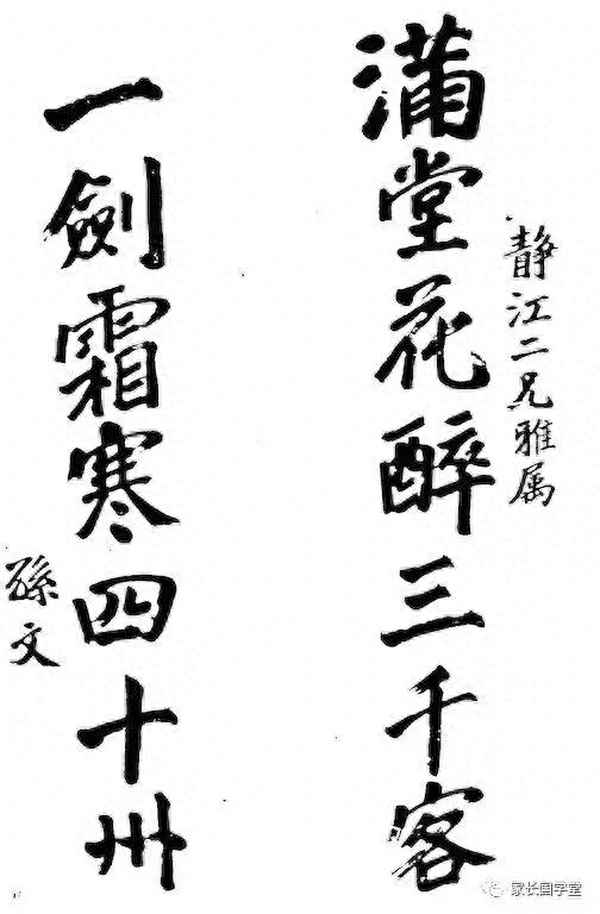 静江二兄雅属
满堂花醉三千客
一劍霜寒四十州
孫文
家长国学堂